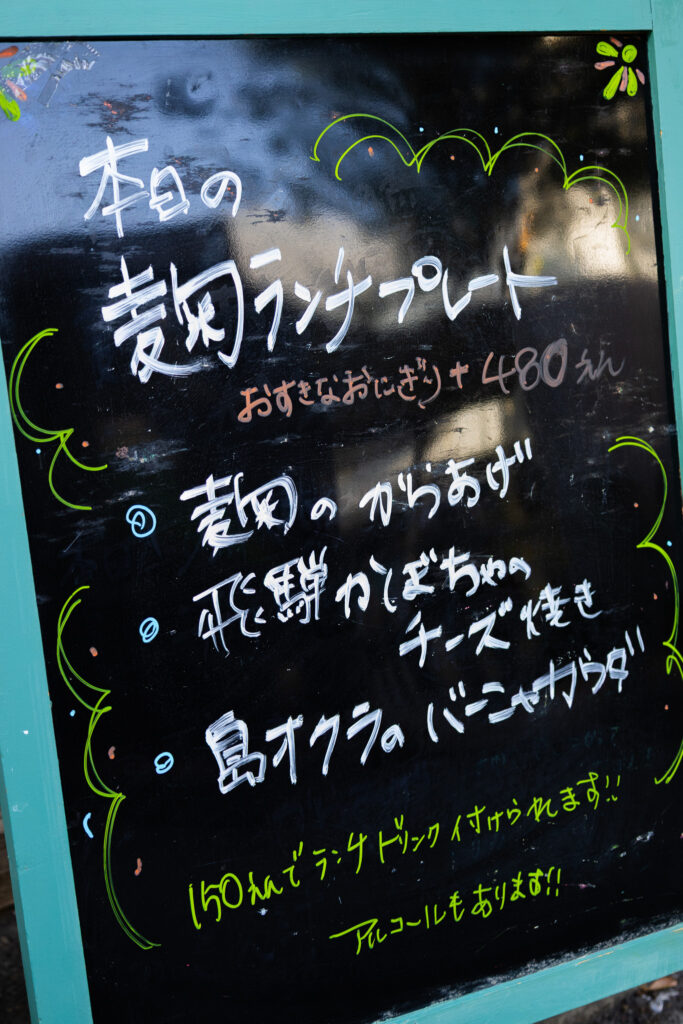 本日の
麹ランチプレート
おすきなおにぎり+480えん
麹のからあげ
飛騨かぼちゃの
チーズ焼き
島オクラのバーニャカウダ
150えんでランチドリンク付けられます!!
アルコールもあります!!